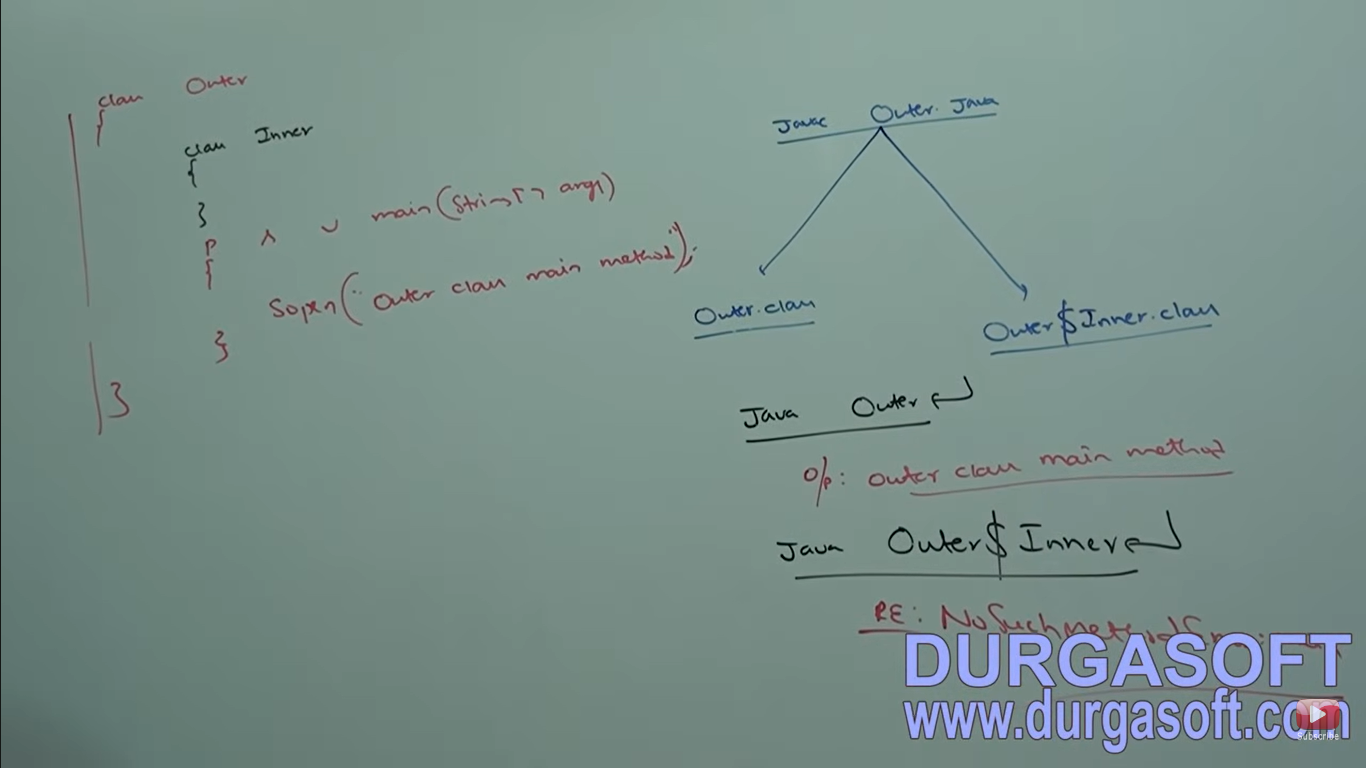 class Outer
{
class Inner
{
}
p s v main(String[] args)
{
Sopln("outer class main method");
}
}
Javac Outer.Java
Outer.class
Outer$Inner.class
Java Outer
O/p: outer class main method
Java Outer$Inner
RE: NoSuchMethodError:
DURGASOFT
www.durgasoft.com
Subscribe